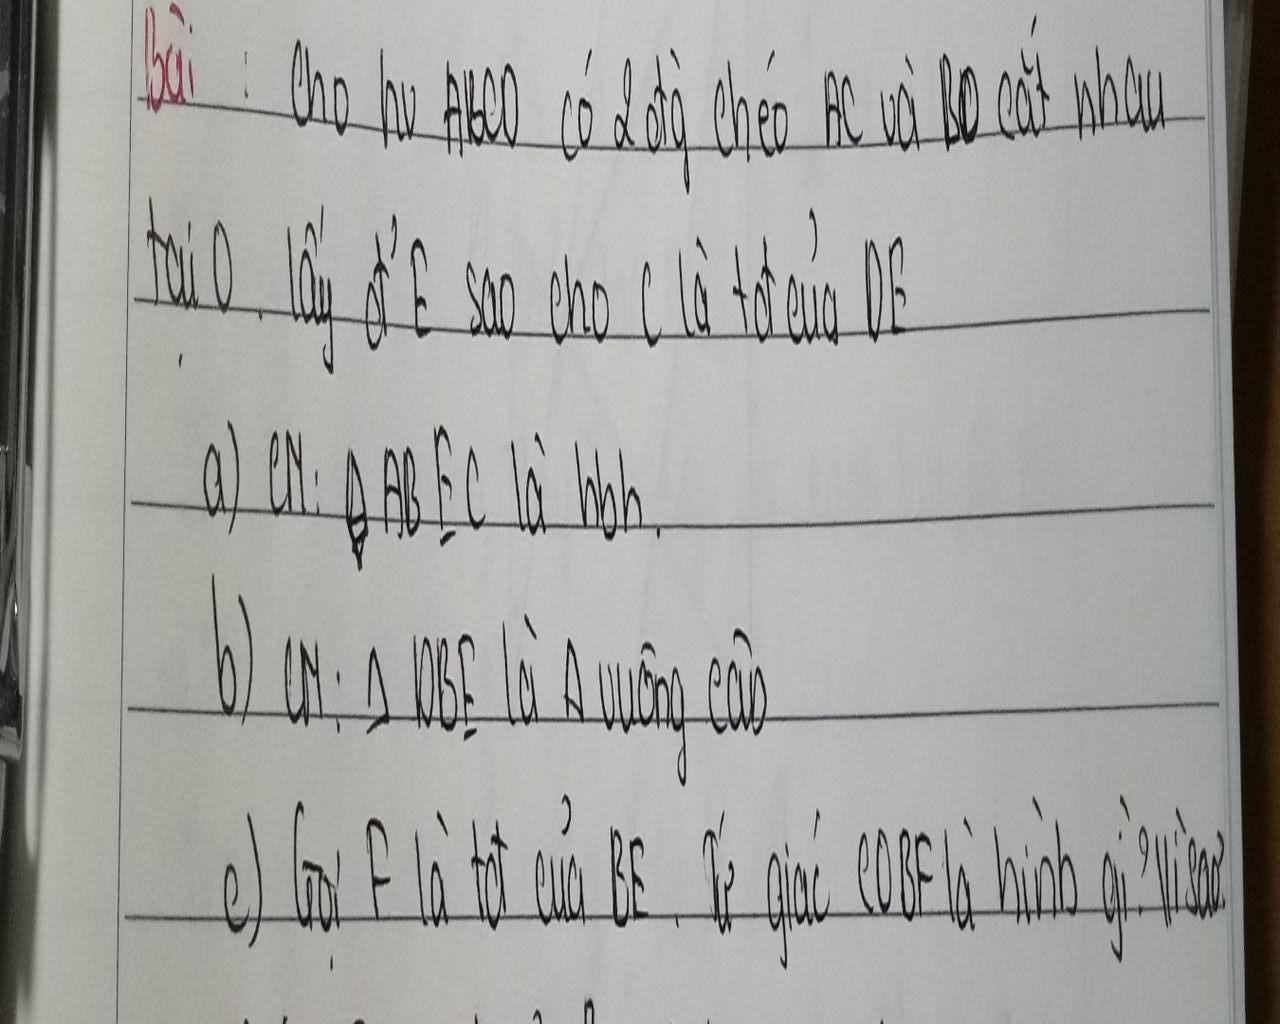 Bài: Cho hv ABCD có 2 đg chéo AC và BD cắt nhau
tại O. lấy đ' E sao cho C là tđ của DE
a) CM: ◊ ABEC là hbh.
b) CM: Δ DBE là Δ vuông cân
c) Gọi F là tđ của BE. Tứ giác COBF là hình gì? Vì sao?